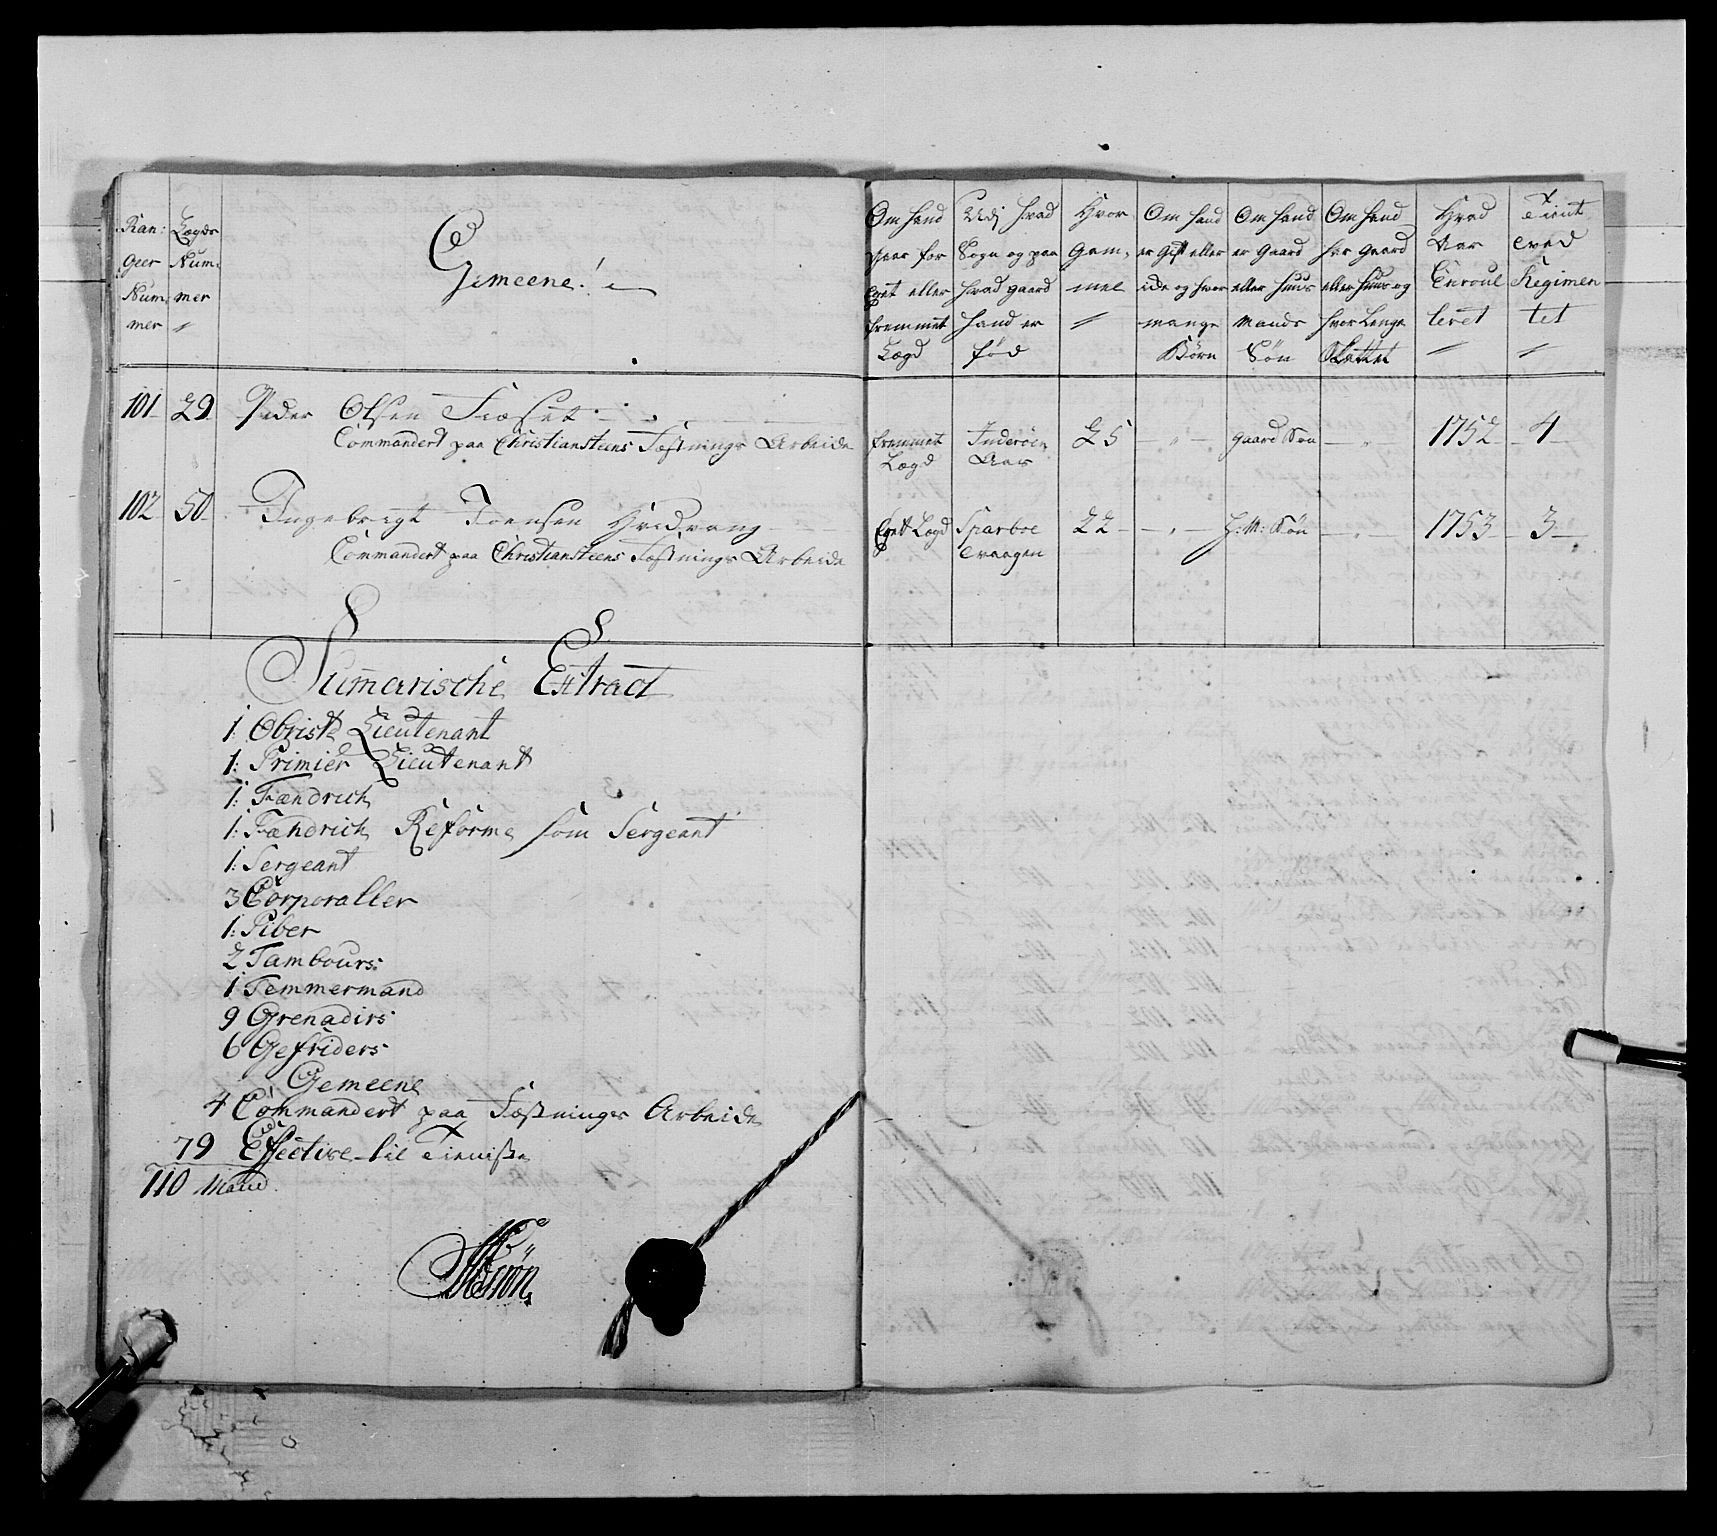 Ran: Lægds
geer Num:
Num: mer
mer "
Gemeene!
Om hand staar for Eget eller fremmet Lægd
Udj hvad Sogn og paa hvad gaard hand er fød
Hvor Gam: mel "
Om hand er Gift eller ide og hvor mange Børn
Om hand er Gaard eller Huus Mands Søn
Om hand har Gaard eller Huus og hvor Lenge
Hvad Aar Enroul leret "
Tient ved Regimen tet "
101 29 Peder Olsen
Commandert paa Christiansteens Fæstnings Arbeide
fremmet Lægd Inderøen 25 " gaard Søn " 1752 4
102 50 Ingebrigt Joensen
Commandert paa Christiansteens Fæstnings Arbeide
Eget Lægd Sparboe 22 " H: M: Søn " 1753 3
Sumarische Extract
1: Obrist Lieutenant
1: Primier Lieutenant
1: Fændrich
1: Fændrich Reforme som Sergeant
1: Sergeant
3 Corporaller
1: Piber
2 Tambours:
1 Temmermand
9 Grenadirs
6 Gefriders
Gemeene
4 Commandert paa Fæstnings Arbeide
79 Effective til Tieniste
110 Mand